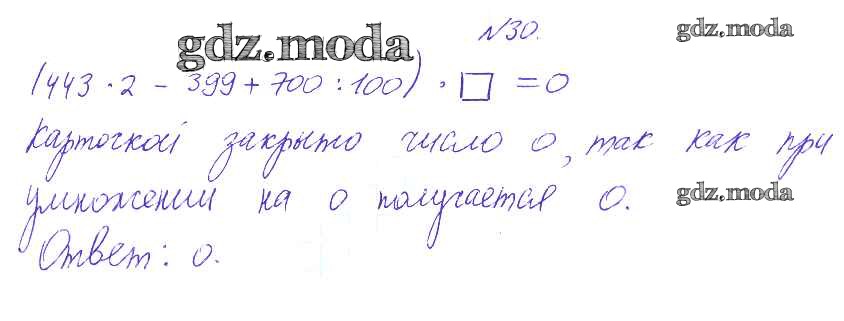 gdz.moda
№30.
gdz.moda
(443 · 2 - 399 + 700 : 100) · □ = 0
Карточкой закрыто число 0, так как при
умножении на 0 получается 0.
gdz.moda
Ответ: 0.